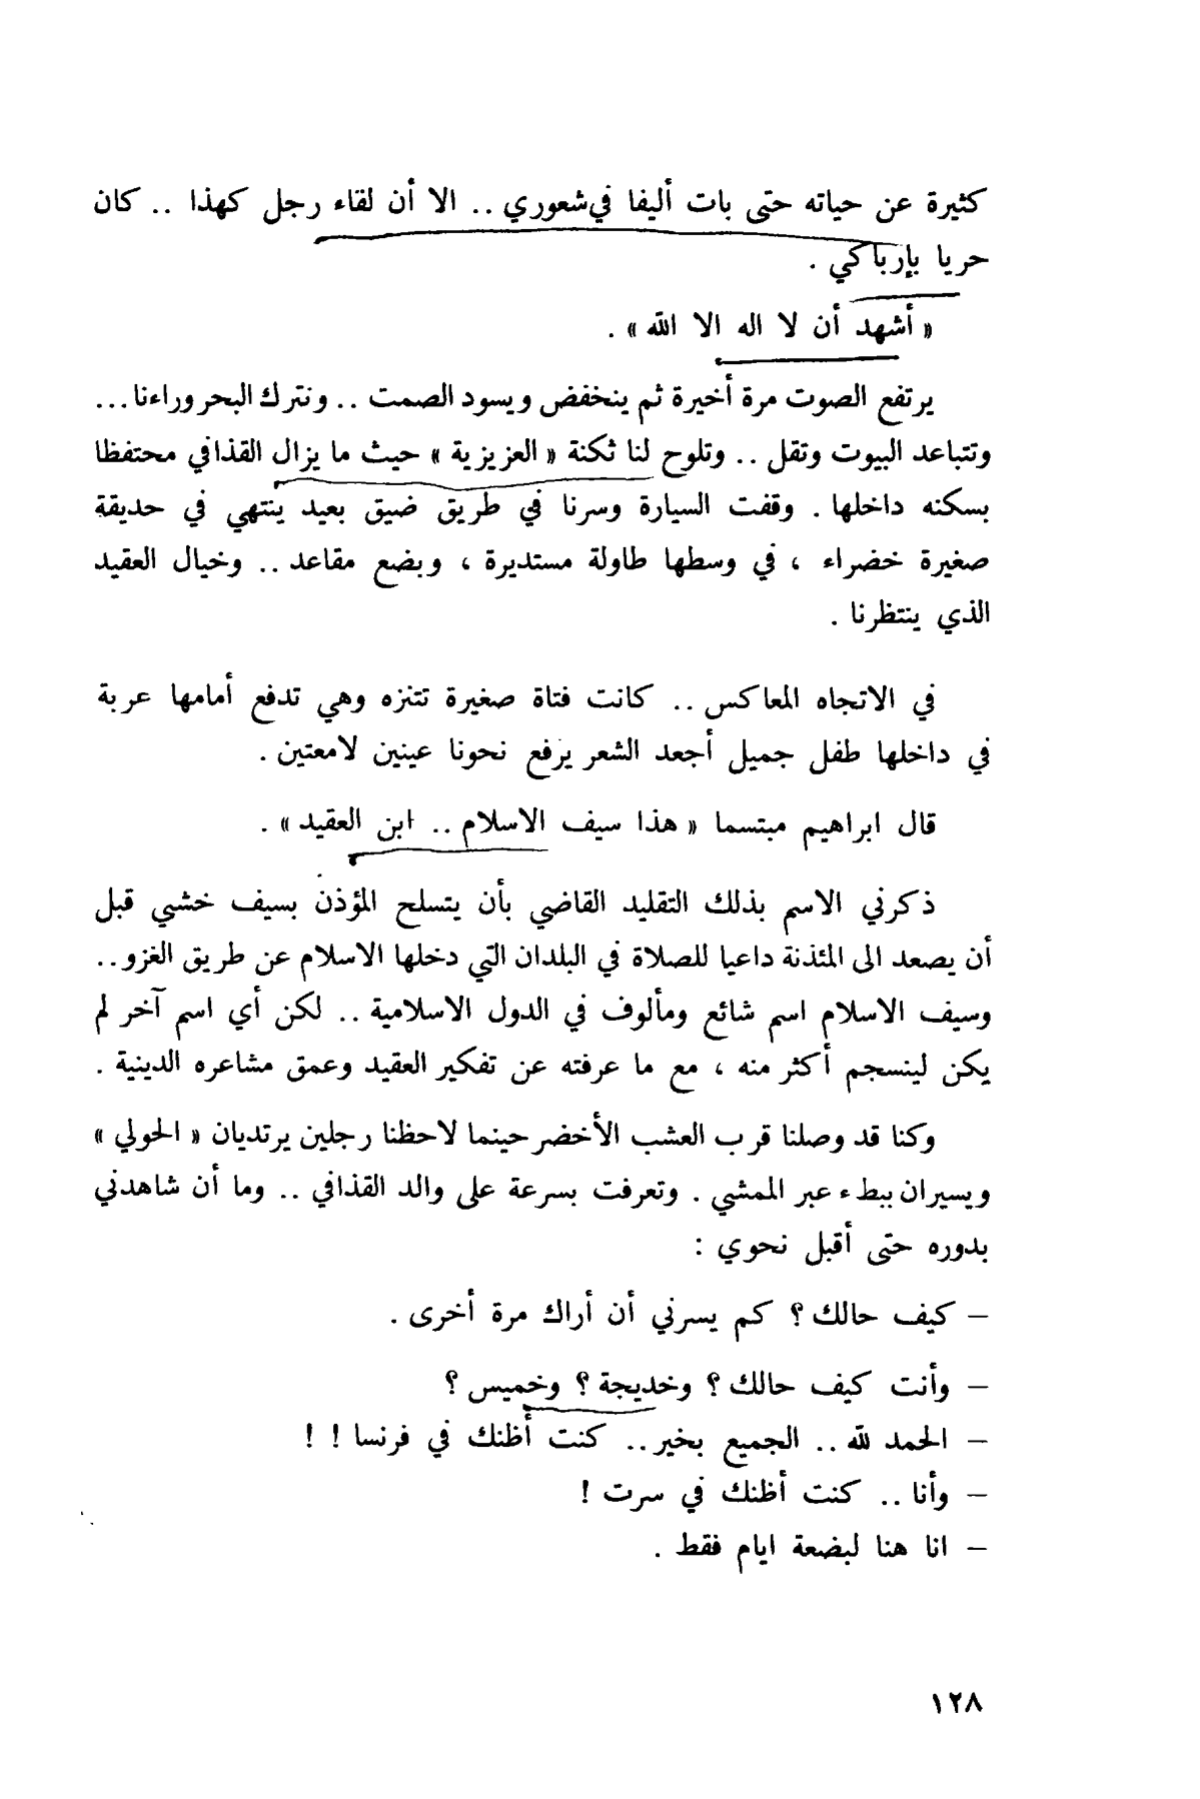 كثيرة عن حياته حتى بات أليفا في شعوري .. الا أن لقاء رجل كهذا .. كان
حريا بإرباكي .
« أشهد أن لا اله الا الله » .
يرتفع الصوت مرة أخيرة ثم ينخفض ويسود الصمت .. ونترك البحر وراءنا ...
وتتباعد البيوت وتقل .. وتلوح لنا ثكنة « العزيزية » حيث ما يزال القذافي محتفظا
بسكنه داخلها . وقفت السيارة وسرنا في طريق ضيق بعيد ينتهي في حديقة
صغيرة خضراء ، في وسطها طاولة مستديرة ، وبضع مقاعد .. وخيال العقيد
الذي ينتظرنا .
في الاتجاه المعاكس .. كانت فتاة صغيرة تتنزه وهي تدفع أمامها عربة
في داخلها طفل جميل أجعد الشعر يرفع نحونا عينين لامعتين .
قال ابراهيم مبتسما « هذا سيف الاسلام .. ابن العقيد » .
ذكرني الاسم بذلك التقليد القاضي بأن يتسلح المؤذن بسيف خشبي قبل
أن يصعد الى المئذنة داعيا للصلاة في البلدان التي دخلها الاسلام عن طريق الغزو ..
وسيف الاسلام اسم شائع ومألوف في الدول الاسلامية .. لكن أي اسم آخر لم
يكن لينسجم أكثر منه ، مع ما عرفته عن تفكير العقيد وعمق مشاعره الدينية .
وكنا قد وصلنا قرب العشب الأخضر حينما لاحظنا رجلين يرتديان « الحولي »
ويسيران ببطء عبر الممشي . وتعرفت بسرعة على والد القذافي .. وما أن شاهدني
بدوره حتى أقبل نحوي :
– كيف حالك ؟ كم يسرني أن أراك مرة أخرى .
– وأنت كيف حالك ؟ وخديجة ؟ وخميس ؟
– الحمد لله .. الجميع بخير .. كنت أظنك في فرنسا ! !
– وأنا .. كنت أظنك في سرت !
– انا هنا لبضعة ايام فقط .
١٢٨